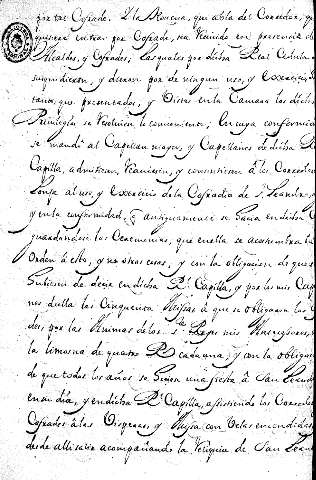 por tal Cofrade. Y la Novena, que abla del Corredor, que
quisiere entrar por Cofrade, sea Recivido en presencia de
Alcaldes, y Cofrades, las quales por dicha Real Cedula se
suspendieran, y deno por de ningun uso, y exercicio
tanto, que presentados, y Vistas en la Camara los dichos
Privilegios se Resolviese lo conveniente; En cuya conformidad
se mandó al Capellan mayor, y Capellanes de dicha Rl
Capilla, admitiesen, Reciviesen, y consintiesen á los Corredores
Lonja al uso, y exercicio de la Cofradia de Sn. Leandro,
y en la conformidad, q antiguamente se hacia en dicha
guardandose las Ceremonias, que en ella se acostumbra
Orden á esto, y no otras cosas, y con la obligacion de que
de deje en dicha Rl. Capilla, y por los mis Cape
nes della las Cinquenta Misas á que se obligaron los
des, por las Animas de los Sres. Reyes mis Antecesores,
la limosna de quatro Rs cada una, y con la obligacion
de que todos los años se hiciese una fiesta á San Leandro
en su dia, y en dicha Rl. Capilla, asistiendo los Corredores
Cofrades á las Visperas, y Misa con Velas encendidas
desde alli salir acompañando la Reliquia de San Leand